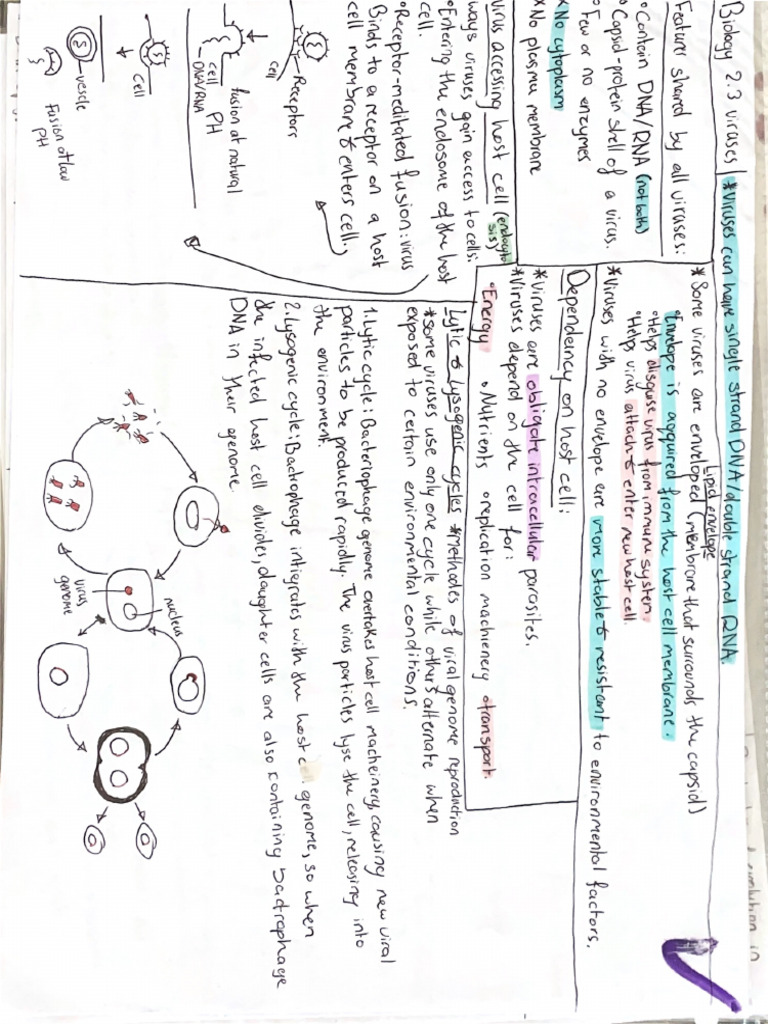 Biology 2.3 viruses
*Viruses can have single strand DNA/double strand RNA.
Features shared by all viruses:
°Contain DNA/RNA (not both)
°Capsid-protein shell of a virus.
°Few or no enzymes
×No cytoplasm
×No plasma membrane
Lipid envelope
*Some viruses are enveloped (membrane that surrounds the capsid)
°Envelope is aquired from the host cell membrane.
°Helps disguise virus from immune system.
°Helps virus attach & enter new host cell.
*Viruses with no envelope are more stable & resistant to environmental factors.
Dependancy on host cell:
*Viruses are obligate intracellular parasites.
*Viruses depend on the cell for:
°Energy °Nutrients °replication machienery °transport.
Virus accessing host cell (endocytosis)
ways viruses gain access to cells:
°Entering the endosome of the host
cell.
°Receptor-meditated fusion: virus
Binds to a receptor on a host
cell membrane & enters cell.
Receptors
cell
fusion at natural
PH
cell
DNA/RNA
cell
vescle
Fusion at low
PH
Lytic & Lysogenic cycles *methodes of viral genome reproduction
*some viruses use only one cycle while others alternate when
exposed to certain environmental conditions.
1. Lytic cycle: Bacteriophage genome overtakes host cell macheinery, causing new viral
particles to be produced rapidly. The virus particles lyse the cell, releasing into
the environment.
2. Lysogenic cycle: Bactrophage intigrates with the host cell genome, so when
the infected host cell divides, daughter cells are also containing bactrophage
DNA in their genome.
nucleus
virus
genome